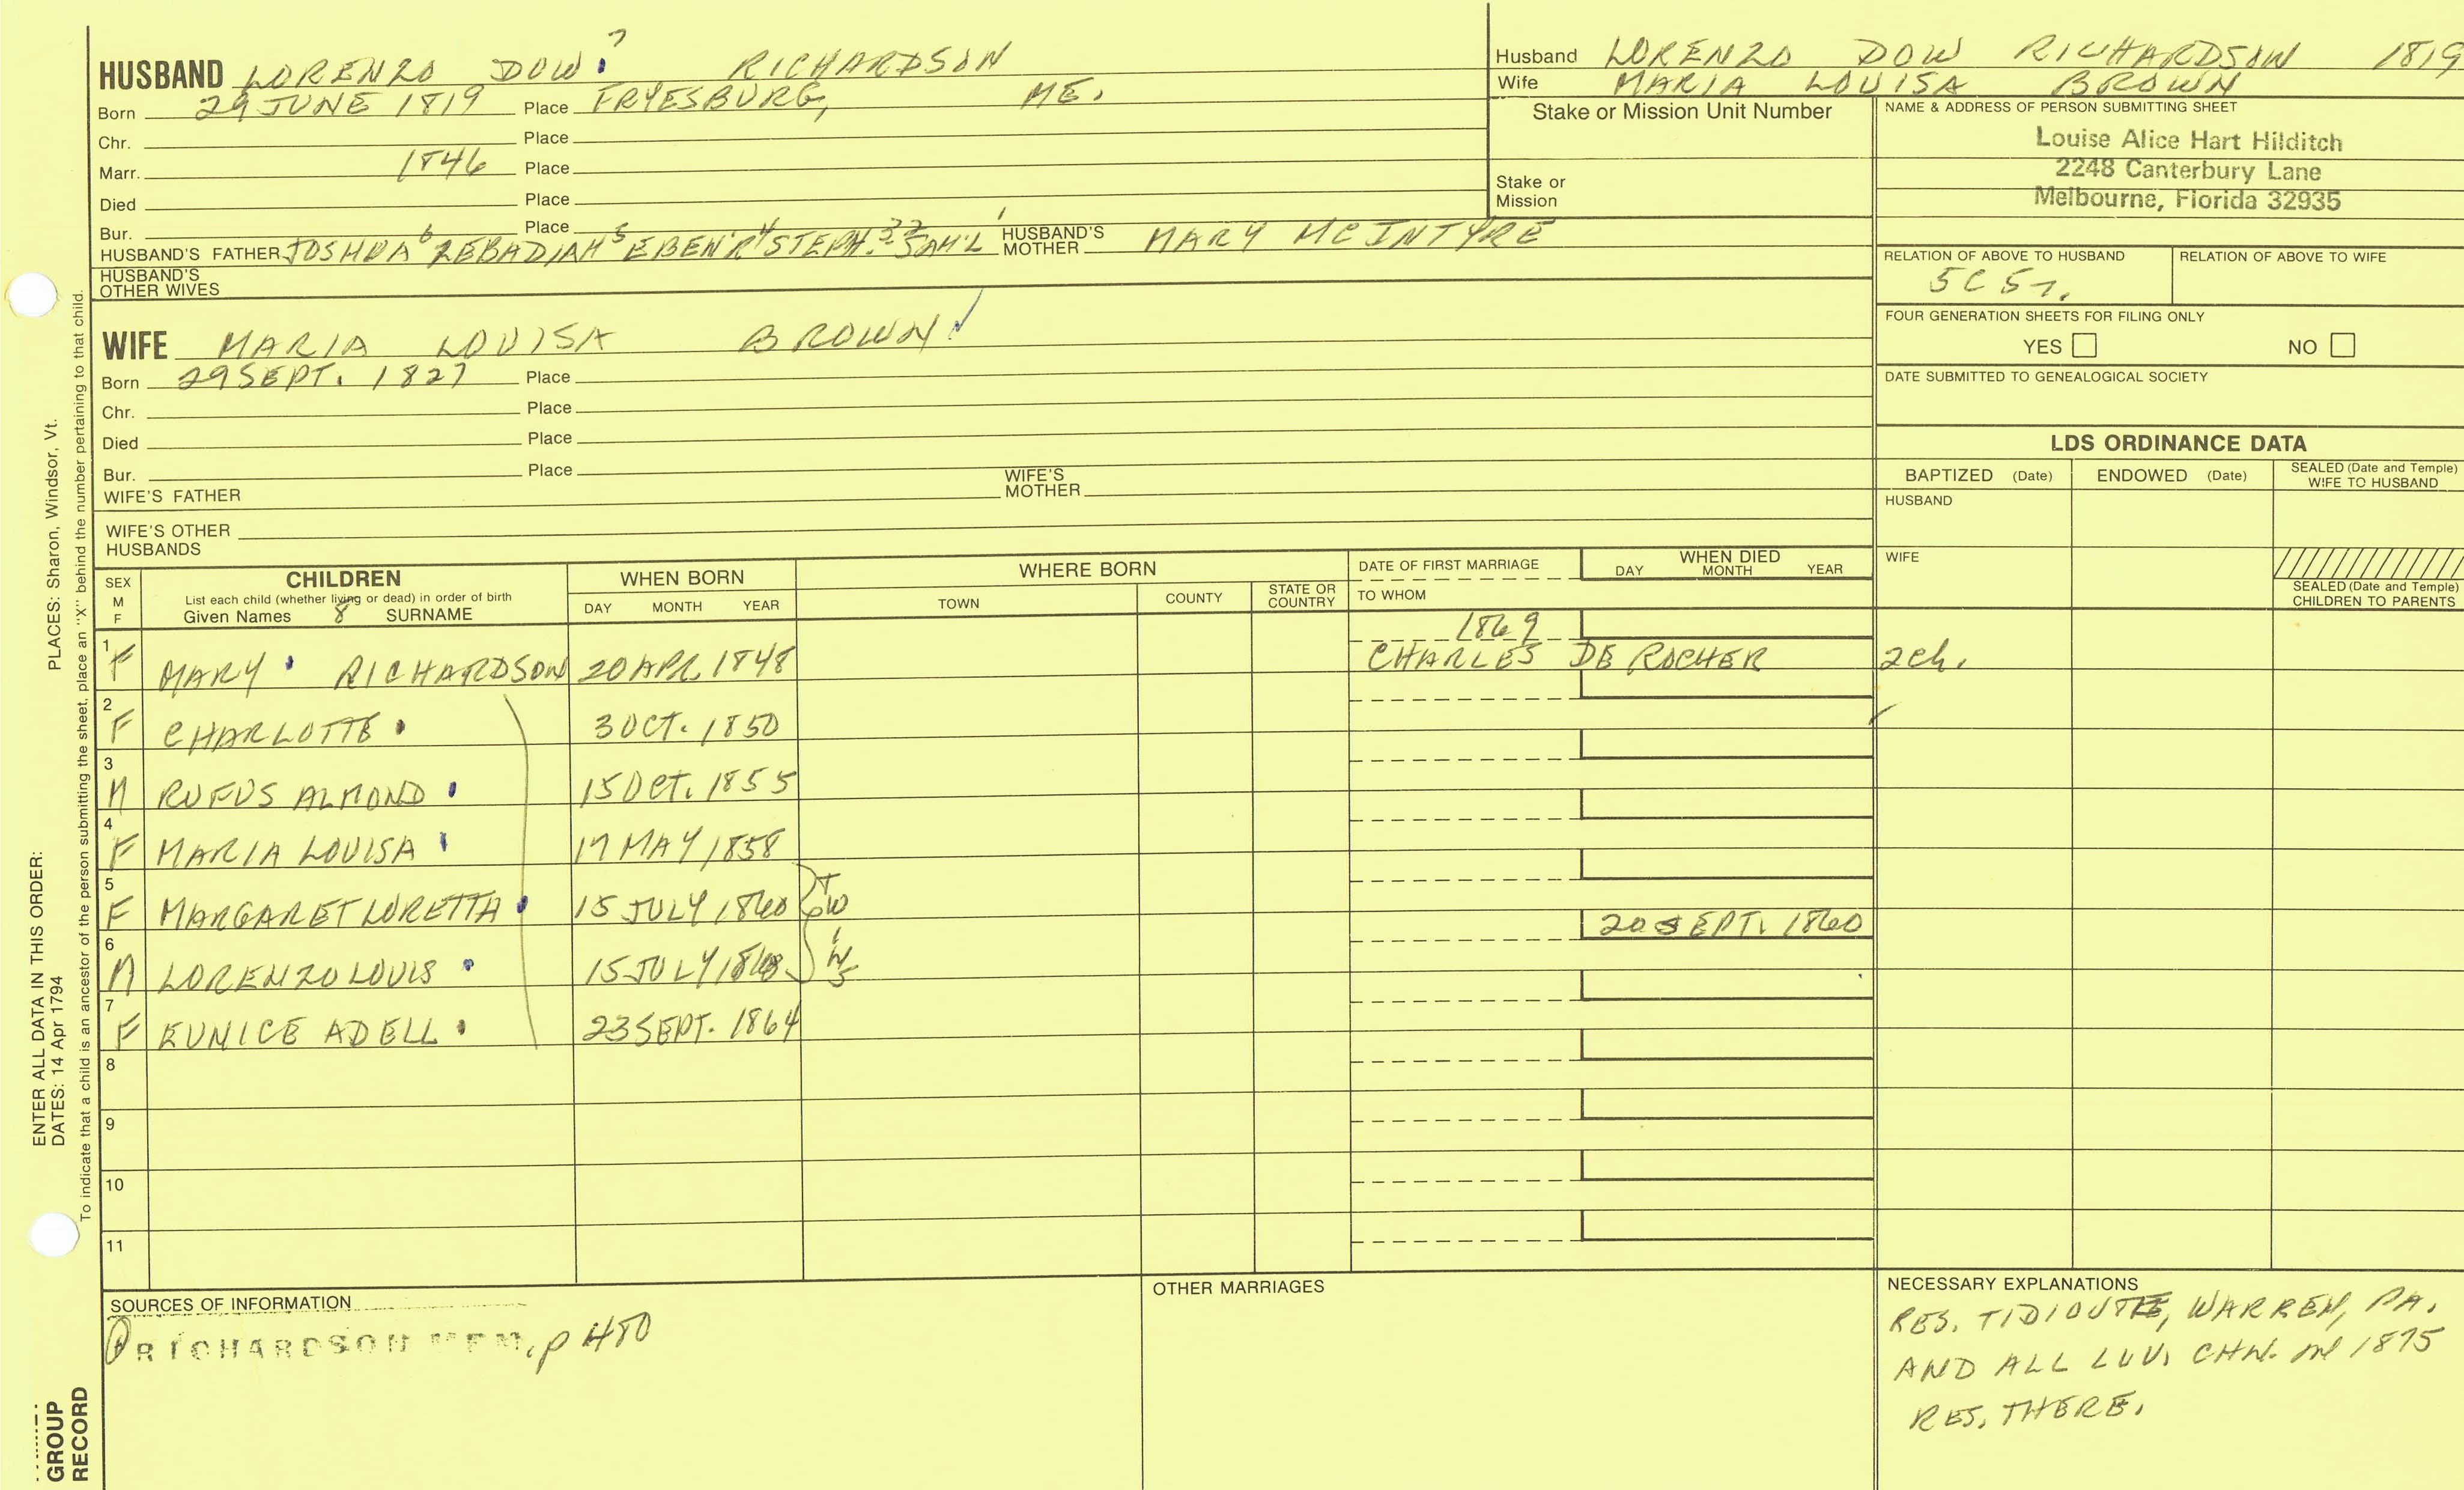 ?
HUSBAND LORENZO DOW RICHARDSON
Born 29 JUNE 1819 Place FRYESBURG, ME.
Chr. Place
Marr. 1846 Place
Died Place
Bur. Place
HUSBAND'S FATHER JOSHUA 6 ZEBADIAH 5 EBEN'R 4 STEPH. 3 2 SAM'L 1 HUSBAND'S MOTHER MARY MCINTYRE
HUSBAND'S OTHER WIVES
WIFE MARIA LOUISA BROWN
Born 29 SEPT. 1827 Place
Chr. Place
Died Place
Bur. Place
WIFE'S FATHER WIFE'S MOTHER
WIFE'S OTHER HUSBANDS
Husband LORENZO DOW RICHARDSON 1819
Wife MARIA LOUISA BROWN
Stake or Mission Unit Number
Stake or Mission
NAME & ADDRESS OF PERSON SUBMITTING SHEET
Louise Alice Hart Hilditch
2248 Canterbury Lane
Melbourne, Florida 32935
RELATION OF ABOVE TO HUSBAND RELATION OF ABOVE TO WIFE
5C5r.
FOUR GENERATION SHEETS FOR FILING ONLY
YES NO
DATE SUBMITTED TO GENEALOGICAL SOCIETY
LDS ORDINANCE DATA
BAPTIZED (Date) ENDOWED (Date) SEALED (Date and Temple) WIFE TO HUSBAND
HUSBAND
WIFE
SEALED (Date and Temple) CHILDREN TO PARENTS
SEX M F
CHILDREN
List each child (whether living or dead) in order of birth
Given Names 8 SURNAME
WHEN BORN
DAY MONTH YEAR
WHERE BORN
TOWN COUNTY STATE OR COUNTRY
DATE OF FIRST MARRIAGE
TO WHOM
WHEN DIED
DAY MONTH YEAR
1 F MARY RICHARDSON 20 APR. 1848 1869 CHARLES DE ROCHER 2ch.
2 F CHARLOTTE 3 OCT. 1850
3 M RUFUS ALMOND 15 OCT. 1855
4 F MARIA LOUISA 17 MAY 1858
5 F MARGARET LORETTA 15 JULY 1860 TWINS 20 SEPT. 1860
6 M LORENZO LOUIS 15 JULY 1860
7 F EUNICE ADELL 23 SEPT. 1864
8
9
10
11
SOURCES OF INFORMATION
RICHARDSON MEM, p 480
OTHER MARRIAGES
NECESSARY EXPLANATIONS
RES. TIDIOUTE, WARREN, PA.
AND ALL LUV. CHN. in 1875
RES. THERE.
PLACES: Sharon, Windsor, Vt.
ENTER ALL DATA IN THIS ORDER:
DATES: 14 Apr 1794
To indicate that a child is an ancestor of the person submitting the sheet, place an "X" behind the number pertaining to that child.
GROUP
RECORD